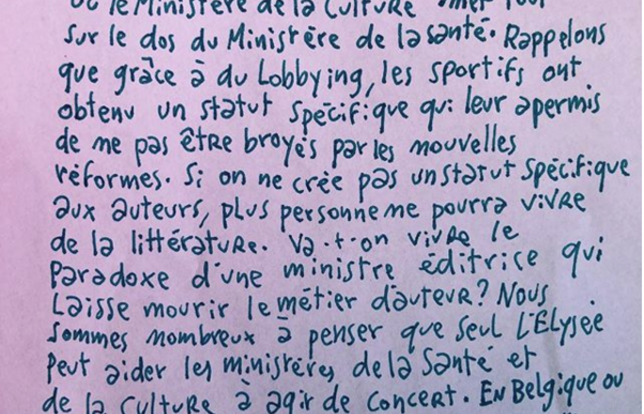 où le Ministère de la Culture met tout
sur le dos du Ministère de la santé. Rappelons
que grâce à du Lobbying, les sportifs ont
obtenu un statut spécifique qui leur a permis
de ne pas être broyés par les nouvelles
réformes. Si on ne crée pas un statut spécifique
aux auteurs, plus personne ne pourra vivre
de la littérature. Va-t-on vivre le
paradoxe d'une ministre éditrice qui
laisse mourir le métier d'auteur? Nous
sommes nombreux à penser que seul l'Elysée
peut aider les ministères de la Santé et
de la Culture à agir de concert. En Belgique ou